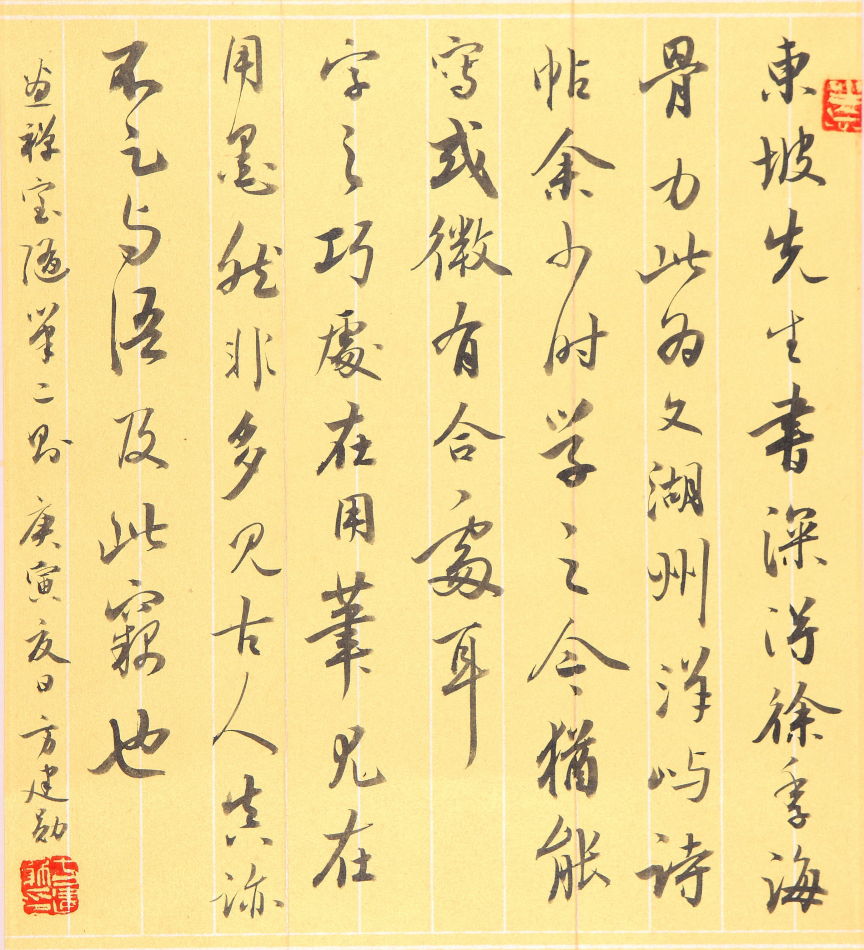 東坡先生書深得徐季海
骨力此为文湖州洋屿诗
帖余少时学之今猶能
寫或微有合處耳
字之巧處在用筆尤在
用墨然非多见古人真迹
不足与语及此竅也
画禅室随筆二则 庚寅夏日 方建勋